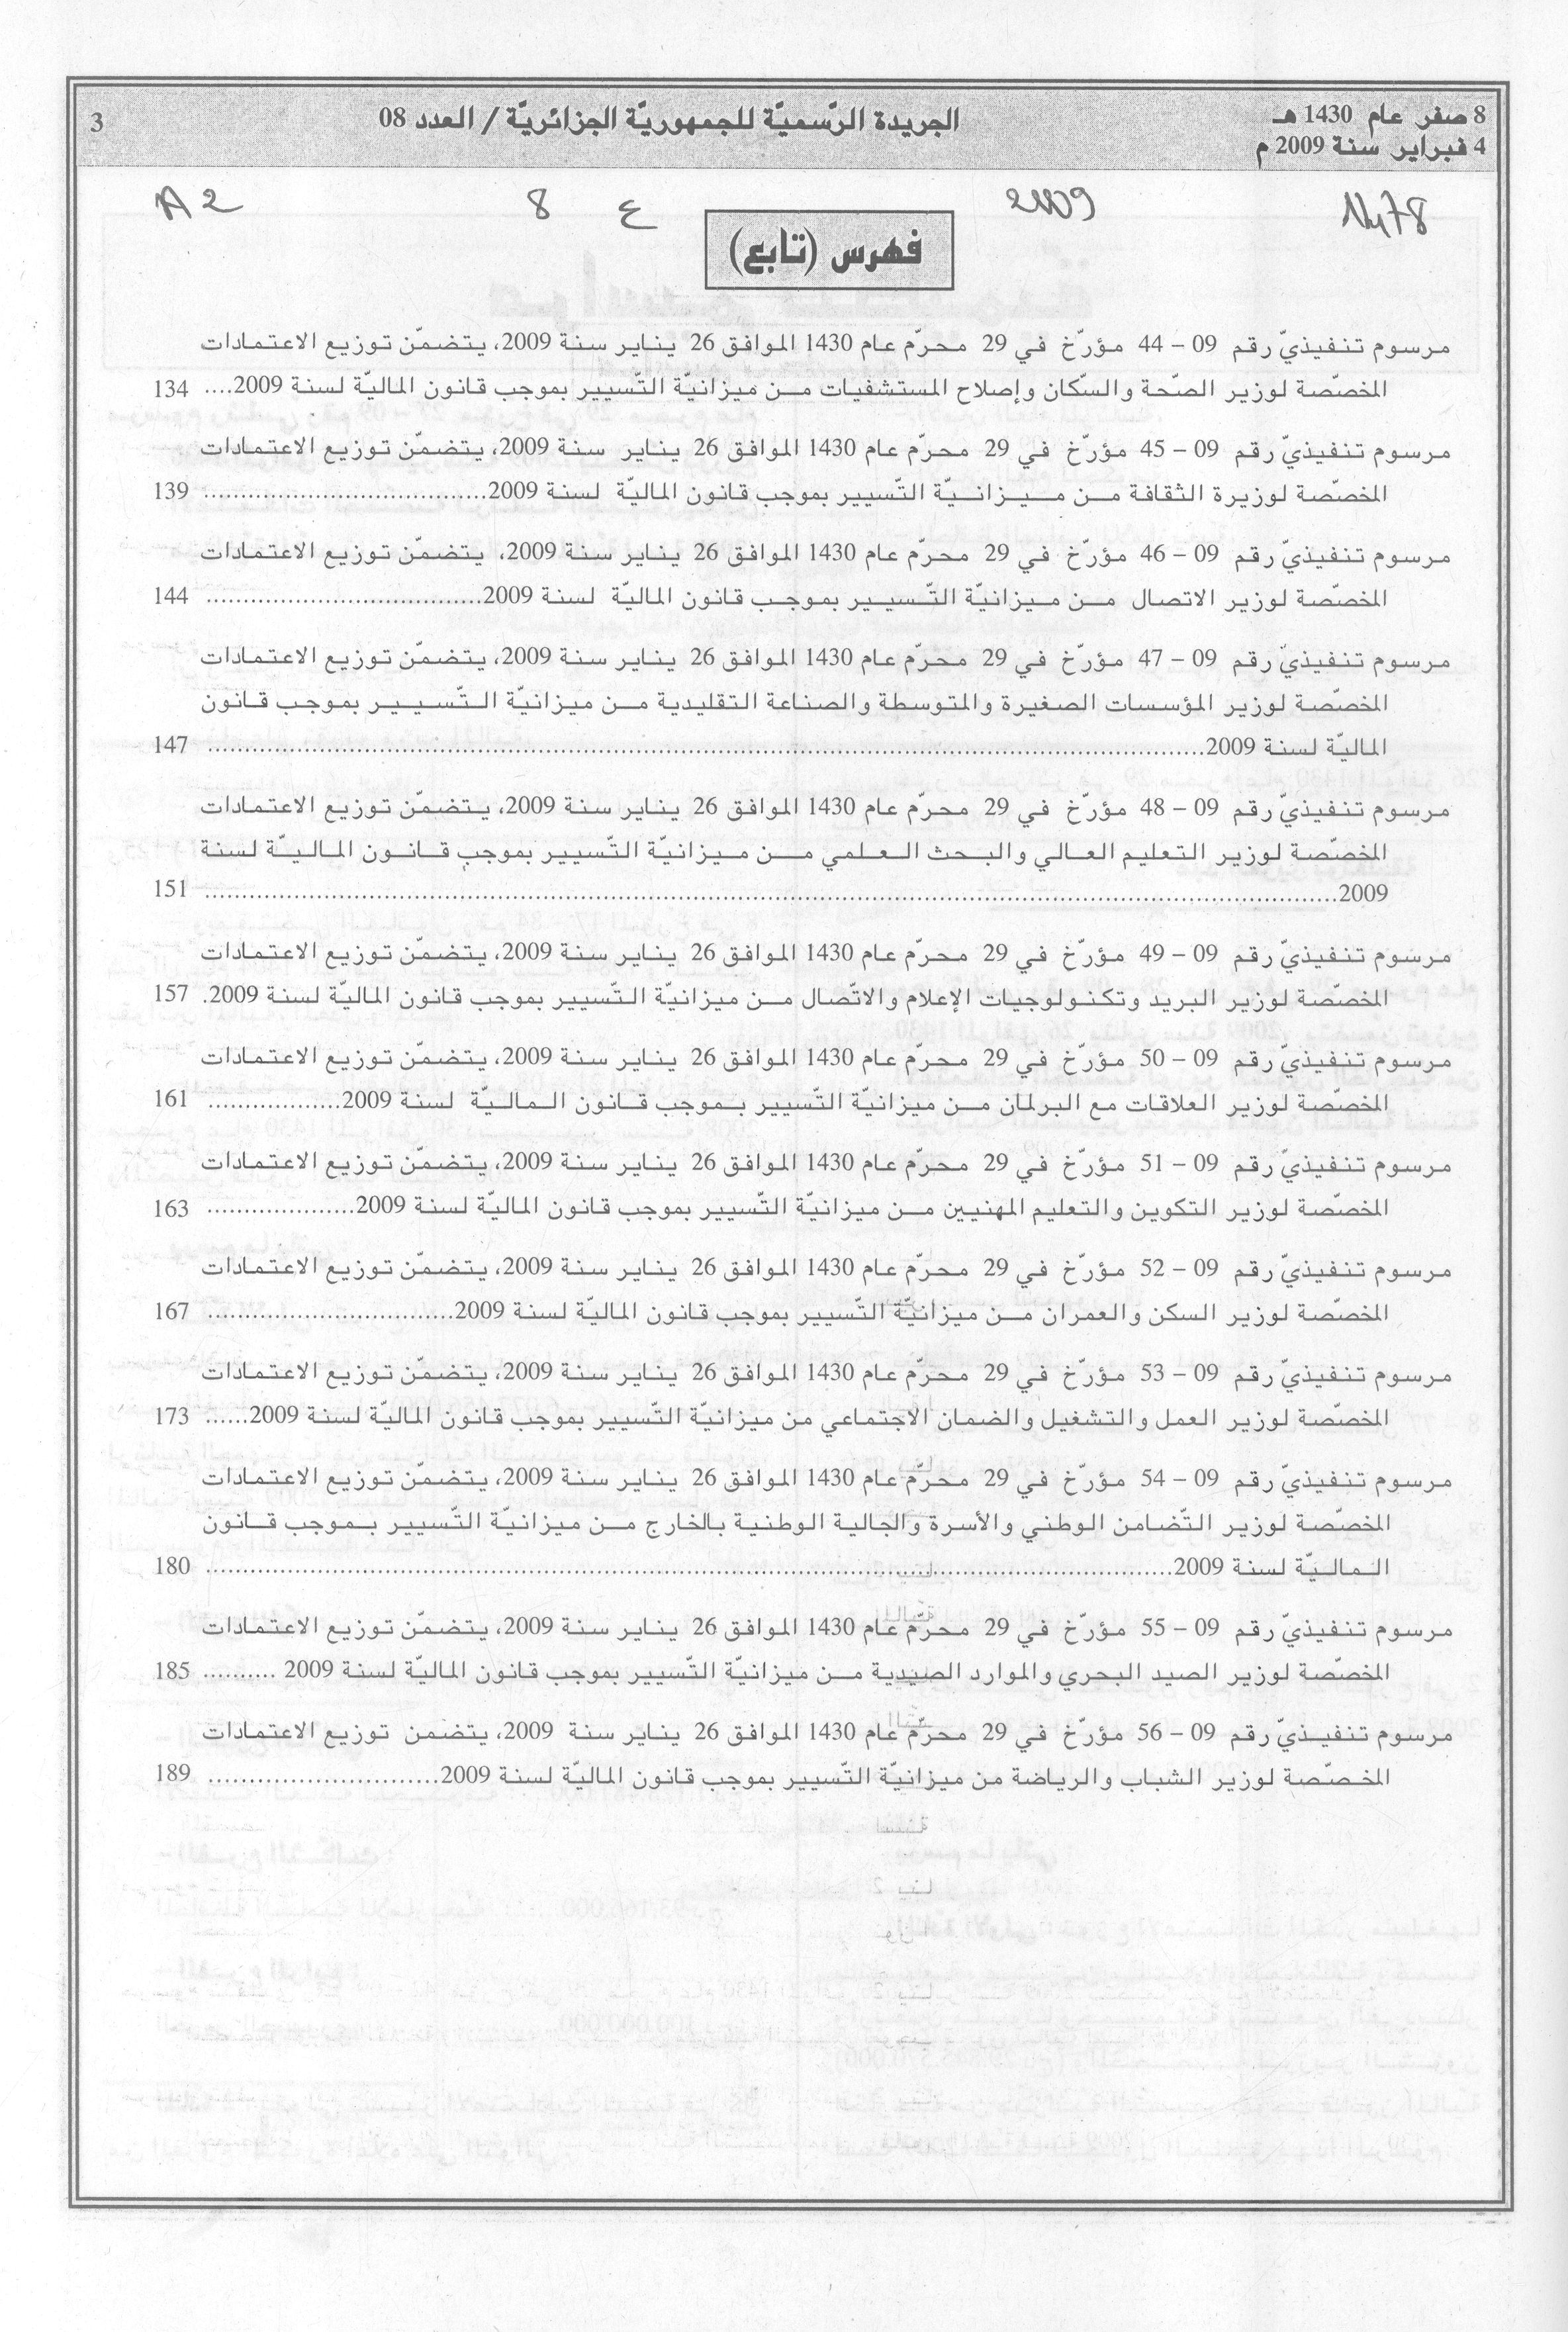 8 صفر عام 1430 هـ
4 فبراير سنة 2009 م
الجريدة الرّسميّة للجمهوريّة الجزائريّة / العدد 08
3
A2 8 ع 2009
فهرس (تابع)
مرسوم تنفيذيّ رقم 09 – 44 مؤرّخ في 29 محرّم عام 1430 الموافق 26 يناير سنة 2009، يتضمّن توزيع الاعتمادات
المخصّصة لوزير الصّحة والسّكان وإصلاح المستشفيات من ميزانيّة التّسيير بموجب قانون الماليّة لسنة 2009.... 134
مرسوم تنفيذيّ رقم 09 – 45 مؤرّخ في 29 محرّم عام 1430 الموافق 26 يناير سنة 2009، يتضمّن توزيع الاعتمادات
المخصّصة لوزيرة الثقافة من ميزانيّة التّسيير بموجب قانون الماليّة لسنة 2009...................................... 139
مرسوم تنفيذيّ رقم 09 – 46 مؤرّخ في 29 محرّم عام 1430 الموافق 26 يناير سنة 2009، يتضمّن توزيع الاعتمادات
المخصّصة لوزير الاتصال من ميزانيّة التّسيير بموجب قانون الماليّة لسنة 2009..................................... 144
مرسوم تنفيذيّ رقم 09 – 47 مؤرّخ في 29 محرّم عام 1430 الموافق 26 يناير سنة 2009، يتضمّن توزيع الاعتمادات
المخصّصة لوزير المؤسسات الصغيرة والمتوسطة والصناعة التقليدية من ميزانيّة التّسيير بموجب قانون
الماليّة لسنة 2009.................................................................................... 147
مرسوم تنفيذيّ رقم 09 – 48 مؤرّخ في 29 محرّم عام 1430 الموافق 26 يناير سنة 2009، يتضمّن توزيع الاعتمادات
المخصّصة لوزير التعليم العالي والبحث العلمي من ميزانيّة التّسيير بموجب قانون الماليّة لسنة
2009.................................................................................................... 151
مرسوم تنفيذيّ رقم 09 – 49 مؤرّخ في 29 محرّم عام 1430 الموافق 26 يناير سنة 2009، يتضمّن توزيع الاعتمادات
المخصّصة لوزير البريد وتكنولوجيات الإعلام والاتّصال من ميزانيّة التّسيير بموجب قانون الماليّة لسنة 2009. 157
مرسوم تنفيذيّ رقم 09 – 50 مؤرّخ في 29 محرّم عام 1430 الموافق 26 يناير سنة 2009، يتضمّن توزيع الاعتمادات
المخصّصة لوزير العلاقات مع البرلمان من ميزانيّة التّسيير بموجب قانون الماليّة لسنة 2009.................. 161
مرسوم تنفيذيّ رقم 09 – 51 مؤرّخ في 29 محرّم عام 1430 الموافق 26 يناير سنة 2009، يتضمّن توزيع الاعتمادات
المخصّصة لوزير التكوين والتعليم المهنيين من ميزانيّة التّسيير بموجب قانون الماليّة لسنة 2009.................... 163
مرسوم تنفيذيّ رقم 09 – 52 مؤرّخ في 29 محرّم عام 1430 الموافق 26 يناير سنة 2009، يتضمّن توزيع الاعتمادات
المخصّصة لوزير السكن والعمران من ميزانيّة التّسيير بموجب قانون الماليّة لسنة 2009................................. 167
مرسوم تنفيذيّ رقم 09 – 53 مؤرّخ في 29 محرّم عام 1430 الموافق 26 يناير سنة 2009، يتضمّن توزيع الاعتمادات
المخصّصة لوزير العمل والتشغيل والضمان الاجتماعي من ميزانيّة التّسيير بموجب قانون الماليّة لسنة 2009...... 173
مرسوم تنفيذيّ رقم 09 – 54 مؤرّخ في 29 محرّم عام 1430 الموافق 26 يناير سنة 2009، يتضمّن توزيع الاعتمادات
المخصّصة لوزير التّضامن الوطني والأسرة والجالية الوطنية بالخارج من ميزانيّة التّسيير بموجب قانون
الماليّة لسنة 2009.................................................................................... 180
مرسوم تنفيذيّ رقم 09 – 55 مؤرّخ في 29 محرّم عام 1430 الموافق 26 يناير سنة 2009، يتضمّن توزيع الاعتمادات
المخصّصة لوزير الصيد البحري والموارد الصيدية من ميزانيّة التّسيير بموجب قانون الماليّة لسنة 2009 .......... 185
مرسوم تنفيذيّ رقم 09 – 56 مؤرّخ في 29 محرّم عام 1430 الموافق 26 يناير سنة 2009، يتضمن توزيع الاعتمادات
المخصّصة لوزير الشباب والرياضة من ميزانيّة التّسيير بموجب قانون الماليّة لسنة 2009............................... 189